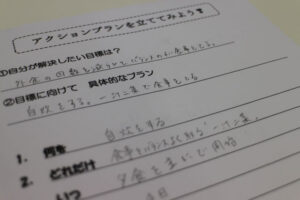 アクションプランを立ててみよう
①自分が解決したい目標は？
外食の回数を減らしてバランスのよい食事をとる。
②目標に向けて 具体的なプラン
自炊をする。一汁二菜で食事をとる
1. 何を 自炊をする
2. どれだけ 食事をバランスよく 一汁二菜。
夕食を
いつ